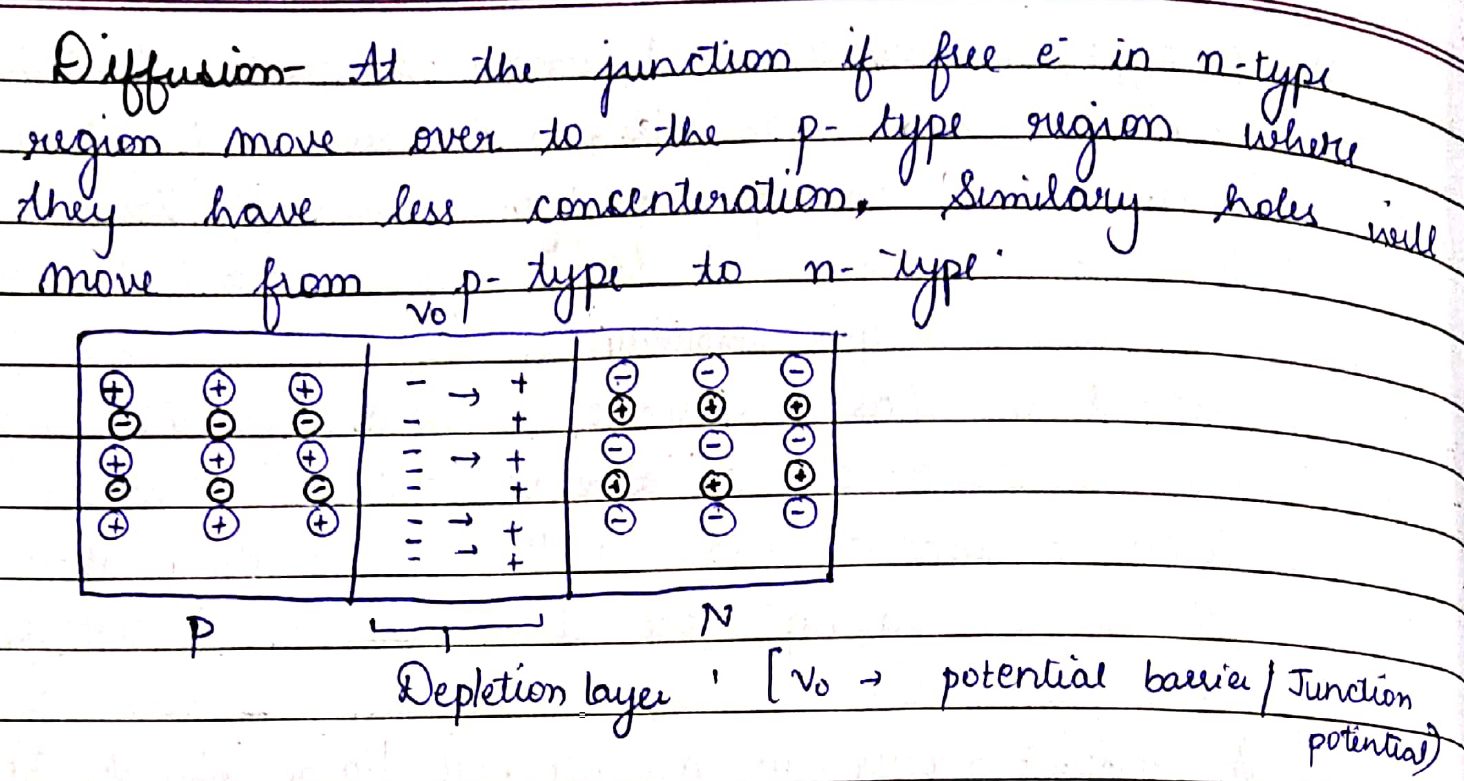 Diffusion- At the junction if free e⁻ in n-type
region move over to the p- type region where
they have less concenteration. Similary holes will
move from p- type to n- type.
V₀
+ + + - → + - - -
- - - - + + + +
+ + + - → + - - -
- - - - + + + +
+ + + - → + - - -
- → +
P N
Depletion layer ' [V₀ → potential barrier / Junction
potential)